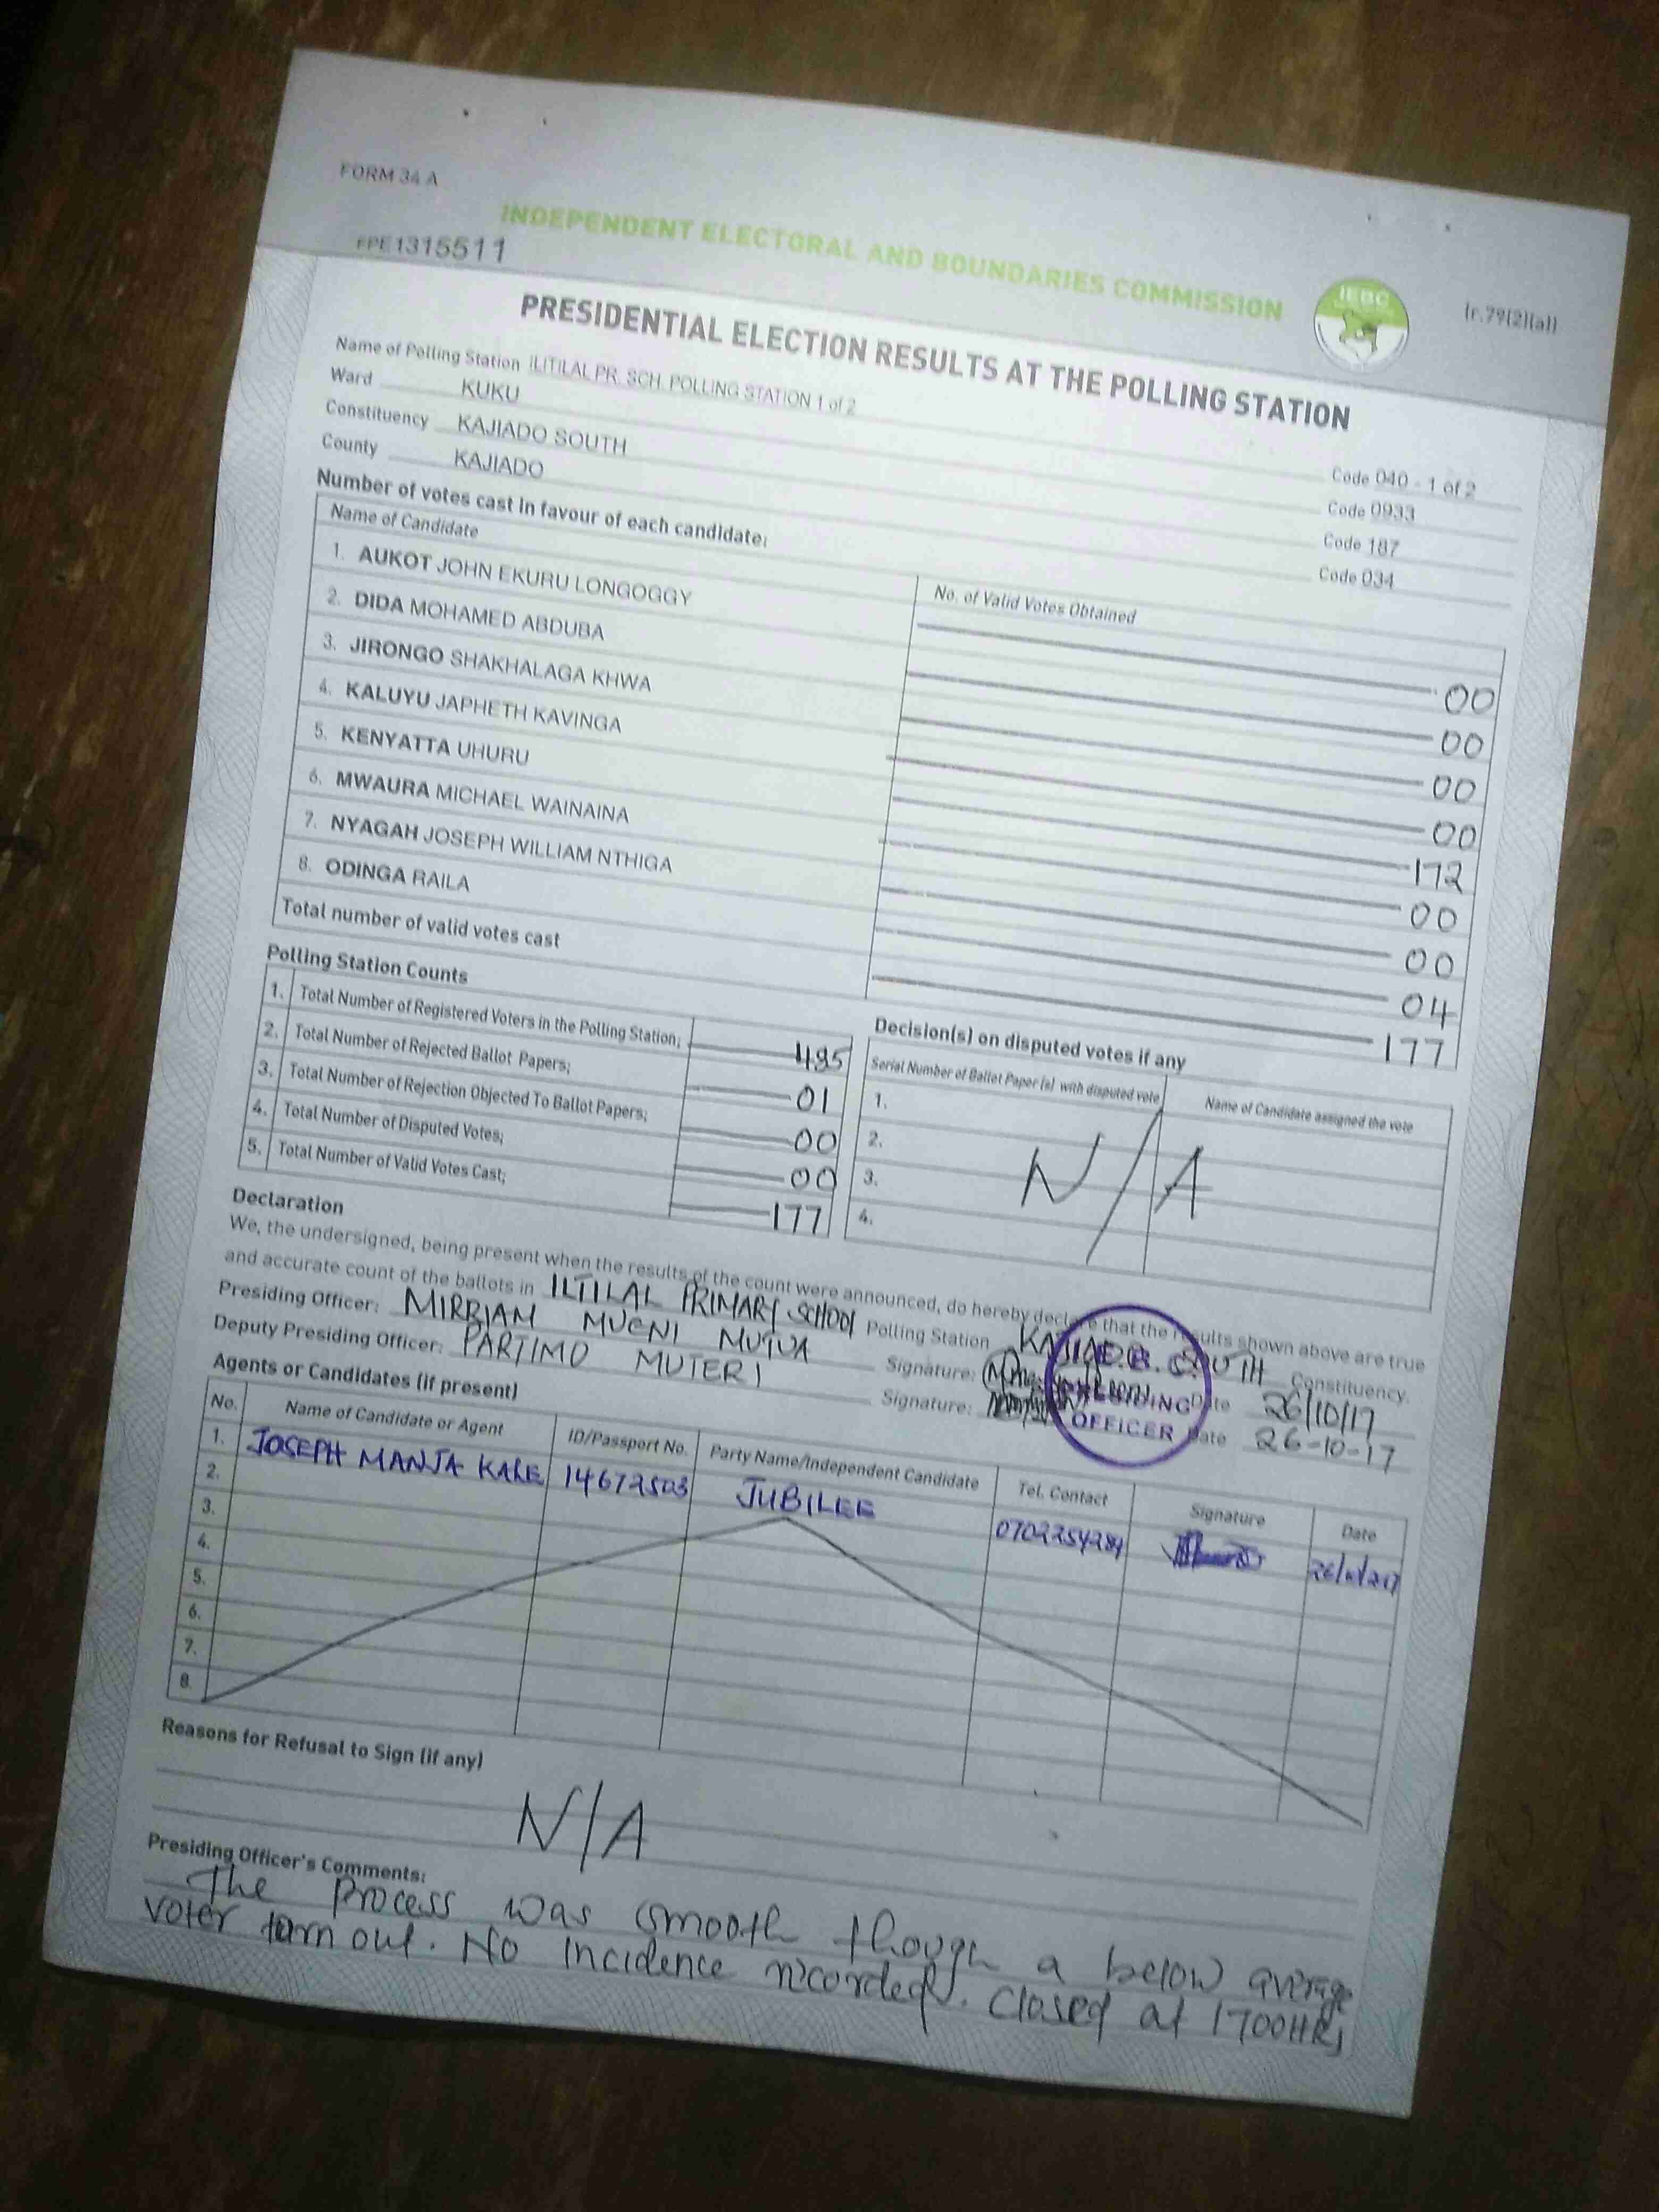 FORM 34 A
INDEPENDENT ELECTORAL AND BOUNDARIES COMMISSION
IEBC
(r.79(2)(a))
EPE1315511
PRESIDENTIAL ELECTION RESULTS AT THE POLLING STATION
Name of Polling Station ILITILAL PR. SCH. POLLING STATION 1 of 2 Code 040 - 1 of 2
Ward KUKU Code 0933
Constituency KAJIADO SOUTH Code 187
County KAJIADO Code 034
Number of votes cast in favour of each candidate:
Name of Candidate No. of Valid Votes Obtained
1. AUKOT JOHN EKURU LONGOGGY 00
2. DIDA MOHAMED ABDUBA 00
3. JIRONGO SHAKHALAGA KHWA 00
4. KALUYU JAPHETH KAVINGA 00
5. KENYATTA UHURU 172
6. MWAURA MICHAEL WAINAINA 00
7. NYAGAH JOSEPH WILLIAM NTHIGA 00
8. ODINGA RAILA 04
Total number of valid votes cast 177
Polling Station Counts
1. Total Number of Registered Voters in the Polling Station; 495
2. Total Number of Rejected Ballot Papers; 01
3. Total Number of Rejection Objected To Ballot Papers; 00
4. Total Number of Disputed Votes; 00
5. Total Number of Valid Votes Cast; 177
Decision(s) on disputed votes if any
Serial Number of Ballot Paper (s) with disputed vote Name of Candidate assigned the vote
1.
2.
3.
4.
N/A
Declaration
We, the undersigned, being present when the results of the count were announced, do hereby declare that the results shown above are true
and accurate count of the ballots in ILTILAL PRIMARY SCHOOL Polling Station KAJIADO SOUTH Constituency.
Presiding Officer: MIRRIAM MUENI MUTUA Signature: Date 26/10/17
Deputy Presiding Officer: PARTIMO MUTERI Signature: Date 26-10-17
PRESIDING
OFFICER
Agents or Candidates (if present)
No. Name of Candidate or Agent ID/Passport No. Party Name/Independent Candidate Tel. Contact Signature Date
1. JOSEPH MANJA KALE 14672503 JUBILEE 0702254284
2.
3.
4.
5.
6.
7.
8.
Reasons for Refusal to Sign (if any)
N/A
Presiding Officer's Comments:
The process was smooth though a below average
voter turn out. No incidence recorded. Closed at 1700HRS